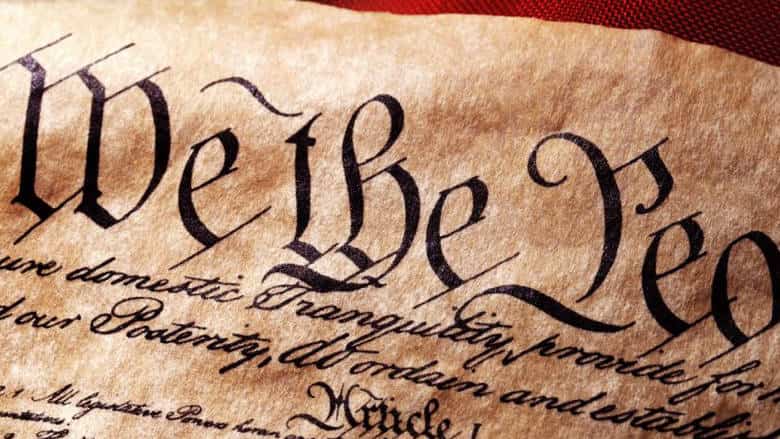 We the Peo
ure domestic Tranquility, provide for
d our Posterity, do ordain and establi
Article 1
1 All legislative Powers herein